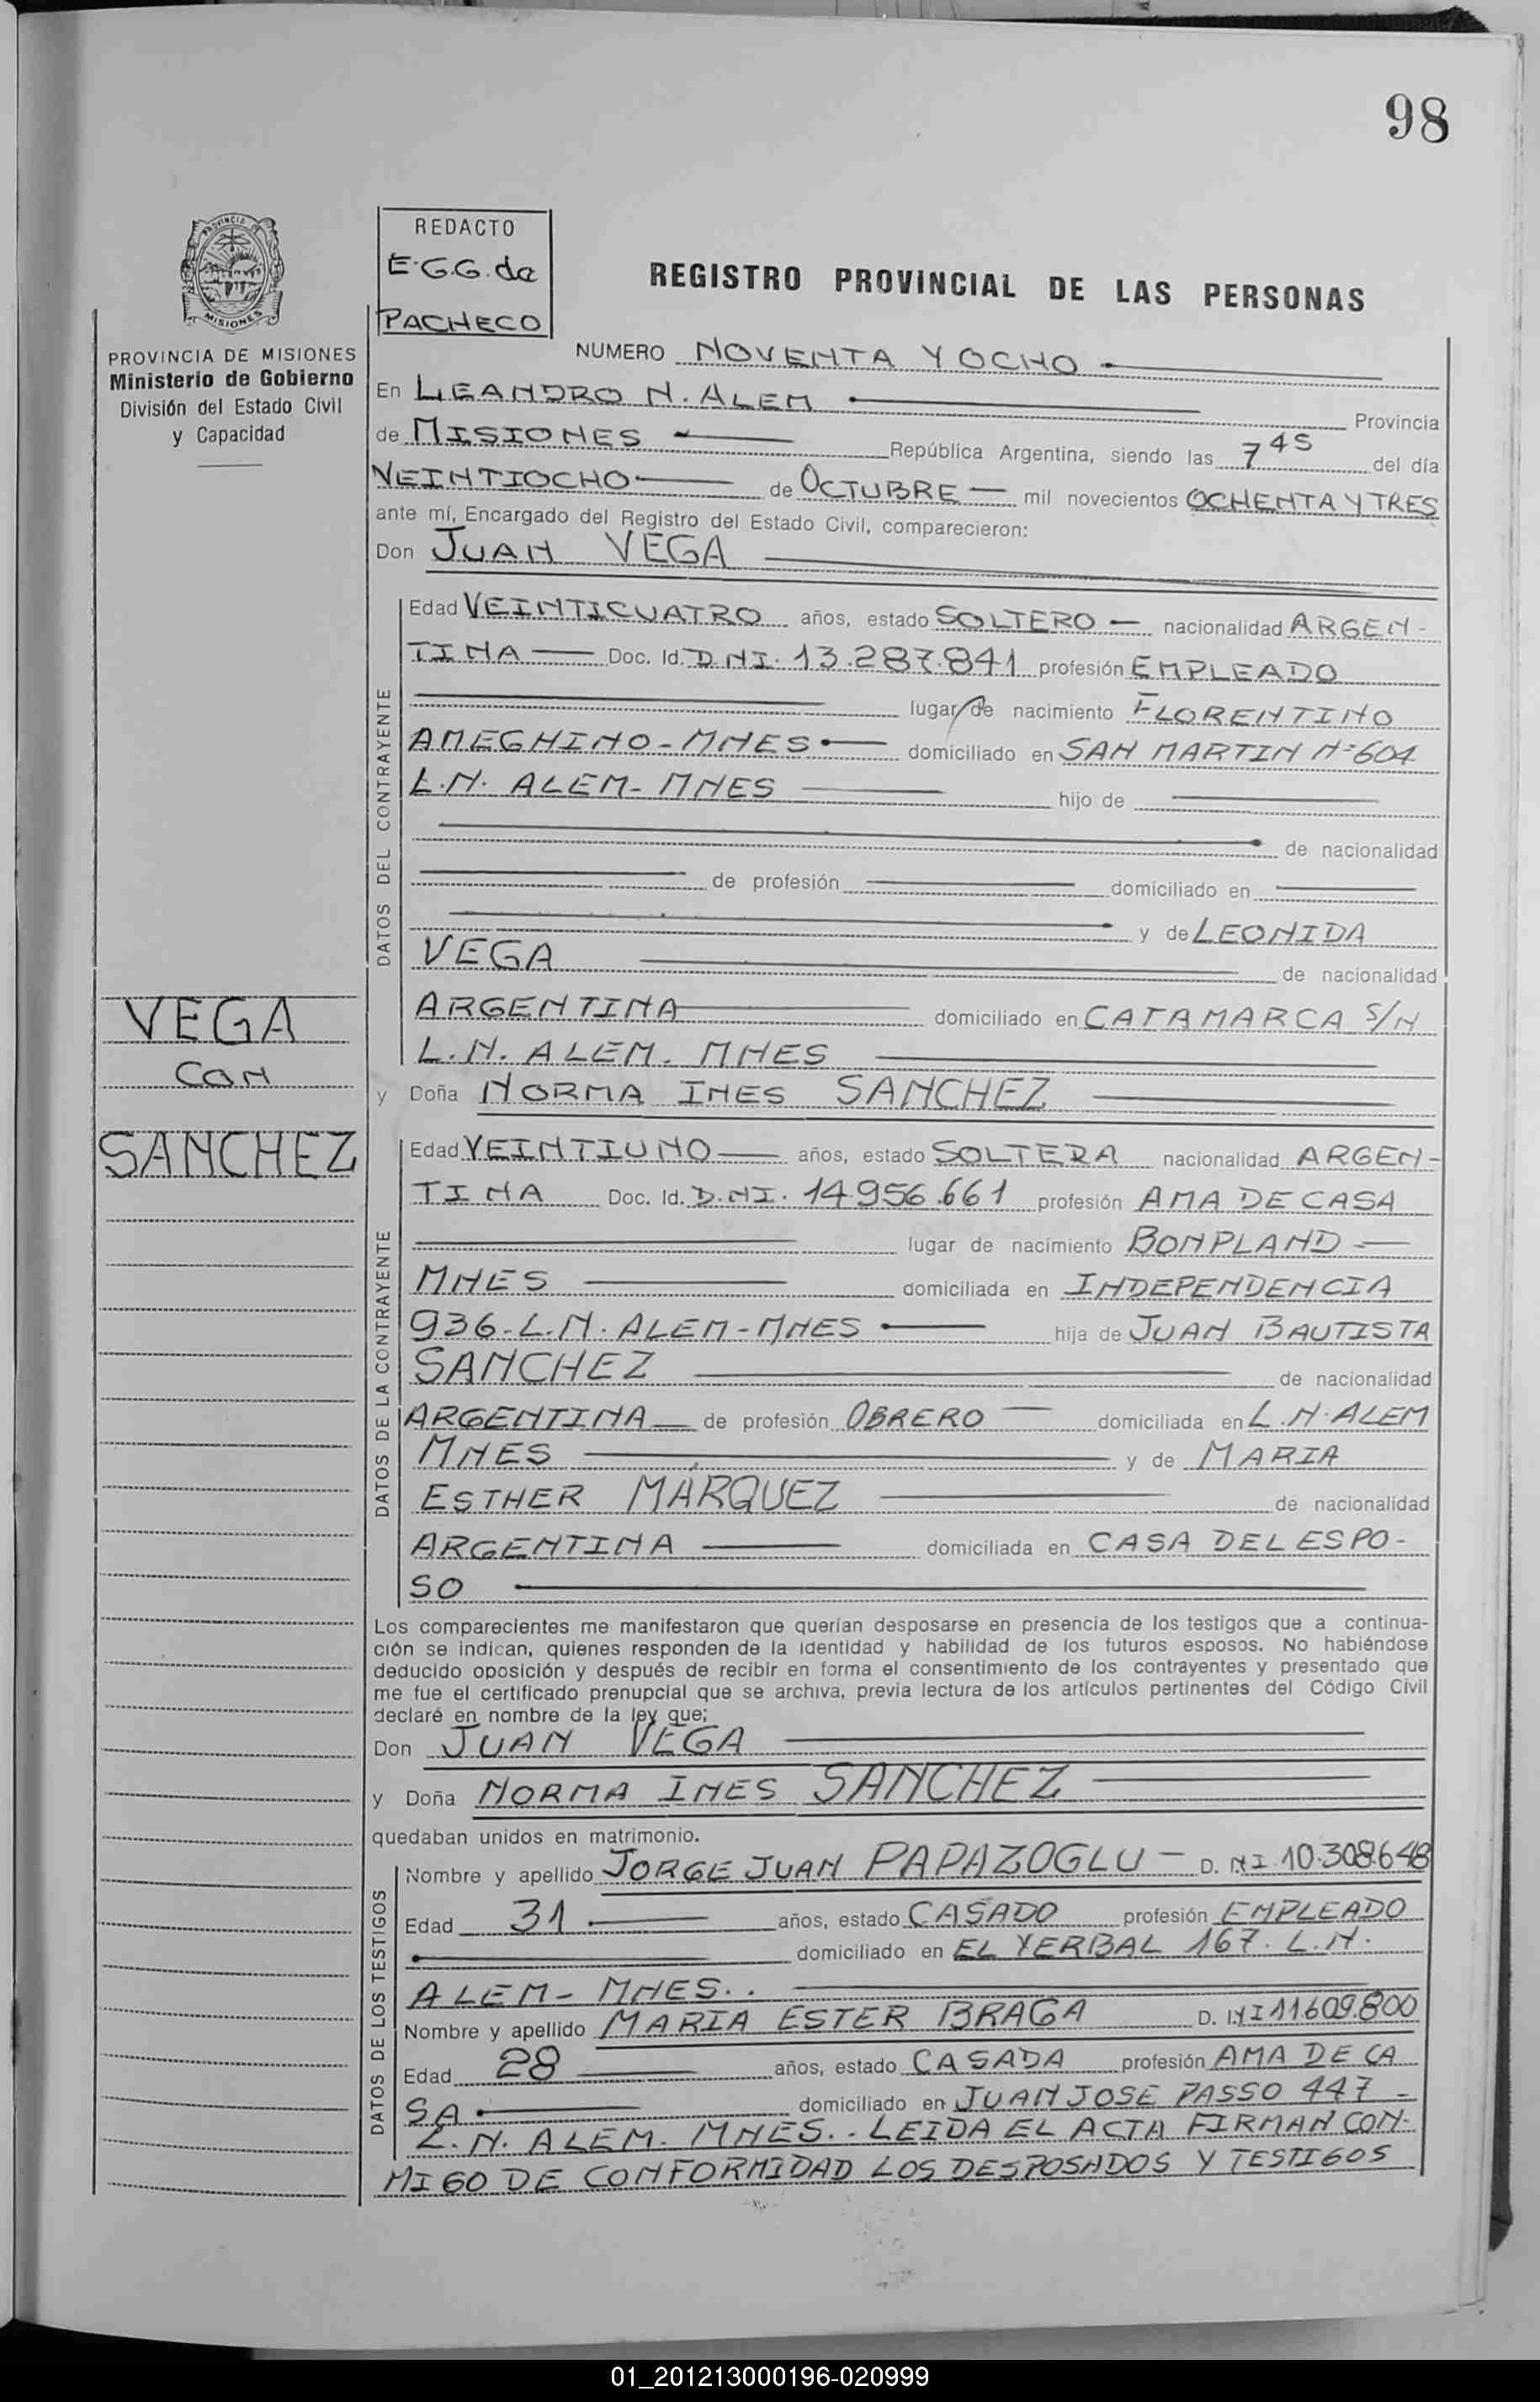 98
PROVINCIA DE MISIONES
MISIONES
PROVINCIA DE MISIONES
Ministerio de Gobierno
División del Estado Civil
y Capacidad
REDACTO
E.G.G. de
PACHECO
REGISTRO PROVINCIAL DE LAS PERSONAS
NUMERO NOVENTA Y OCHO
En LEANDRO N. ALEM Provincia
de MISIONES República Argentina, siendo las 7 45 del día
VEINTIOCHO de OCTUBRE mil novecientos OCHENTA Y TRES
ante mí, Encargado del Registro del Estado Civil, comparecieron:
Don JUAN VEGA
DATOS DEL CONTRAYENTE
Edad VEINTICUATRO años, estado SOLTERO nacionalidad ARGEN-
TINA Doc. Id. D.NI. 13.287.841 profesión EMPLEADO
lugar de nacimiento FLORENTINO
AMEGHINO - MNES domiciliado en SAN MARTIN Nº 604
L.N. ALEM - MNES hijo de
de nacionalidad
de profesión domiciliado en
y de LEONIDA
VEGA de nacionalidad
ARGENTINA domiciliado en CATAMARCA S/N
L.N. ALEM. MNES
VEGA
CON
SANCHEZ
y Doña NORMA INES SANCHEZ
DATOS DE LA CONTRAYENTE
Edad VEINTIUNO años, estado SOLTERA nacionalidad ARGEN-
TINA Doc. Id. D.NI. 14.956.661 profesión AMA DE CASA
lugar de nacimiento BONPLAND
MNES domiciliada en INDEPENDENCIA
936. L.N. ALEM - MNES hija de JUAN BAUTISTA
SANCHEZ de nacionalidad
ARGENTINA de profesión OBRERO domiciliada en L.N. ALEM
MNES y de MARIA
ESTHER MÁRQUEZ de nacionalidad
ARGENTINA domiciliada en CASA DEL ESPO-
SO
Los comparecientes me manifestaron que querían desposarse en presencia de los testigos que a continua-
ción se indican, quienes responden de la identidad y habilidad de los futuros esposos. No habiéndose
deducido oposición y después de recibir en forma el consentimiento de los contrayentes y presentado que
me fue el certificado prenupcial que se archiva, previa lectura de los artículos pertinentes del Código Civil
declaré en nombre de la ley que;
Don JUAN VEGA
y Doña NORMA INES SANCHEZ
quedaban unidos en matrimonio.
DATOS DE LOS TESTIGOS
Nombre y apellido JORGE JUAN PAPAZOGLU D. NI. 10.308.648
Edad 31 años, estado CASADO profesión EMPLEADO
domiciliado en EL YERBAL 167. L.N.
ALEM - MNES..
Nombre y apellido MARIA ESTER BRAGA D. NI 11.609.800
Edad 28 años, estado CASADA profesión AMA DE CA
SA domiciliado en JUAN JOSE PASSO 447 -
L.N. ALEM. MNES.. LEIDA EL ACTA FIRMAN CON-
MIGO DE CONFORMIDAD LOS DESPOSADOS Y TESTIGOS
01_201213000196-020999